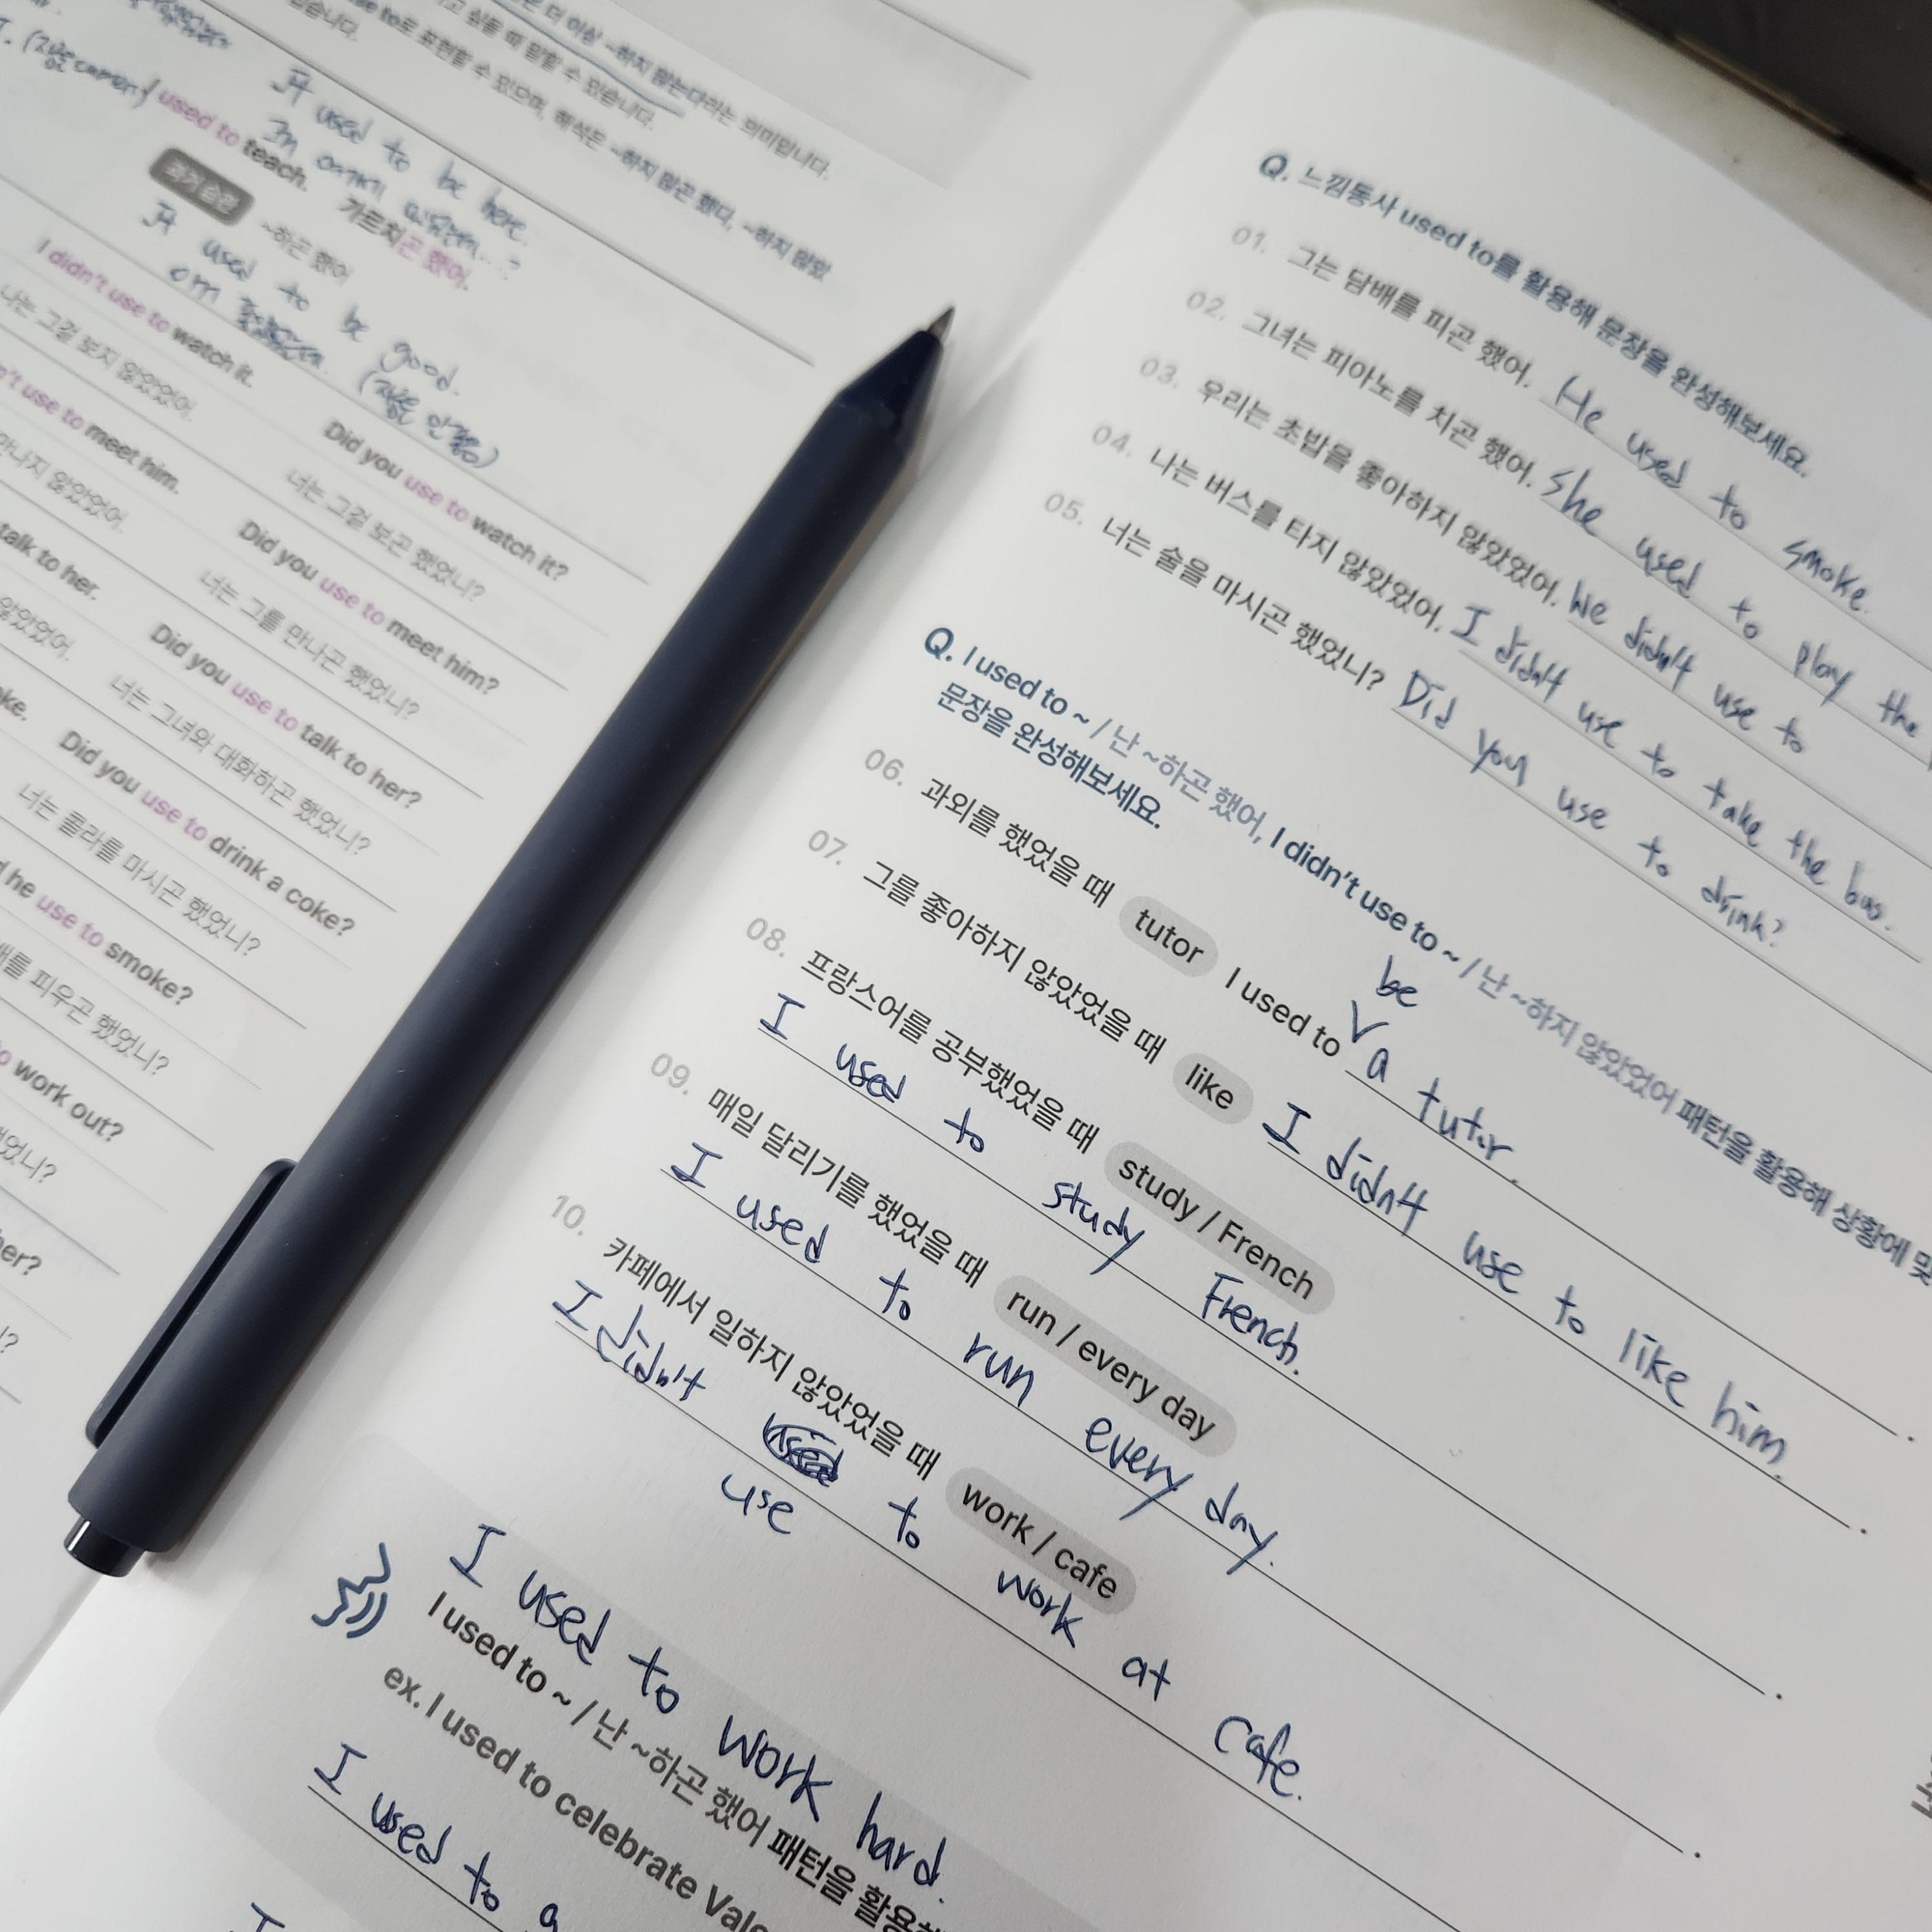 은 더 이상 ~하지 않는다라는 의미입니다.
고 싶을 때 말할 수 있습니다.
to로 표현할 수 있으며, 해석은 ~하지 않곤 했다, ~하지 않았
습니다.
It used to be here.
used to teach.
가르치곤 했어.
과거 습관
~하곤 했어
It used to be good.
I didn't use to watch it.
나는 그걸 보지 않았었어.
Did you use to watch it?
너는 그걸 보곤 했었니?
n't use to meet him.
만나지 않았었어.
Did you use to meet him?
너는 그를 만나곤 했었니?
talk to her.
않았었어.
Did you use to talk to her?
너는 그녀와 대화하곤 했었니?
oke.
Did you use to drink a coke?
너는 콜라를 마시곤 했었니?
d he use to smoke?
배를 피우곤 했었니?
to work out?
했었니?
her?
니?
Q. 느낌동사 used to를 활용해 문장을 완성해보세요.
01. 그는 담배를 피곤 했어. He used to smoke.
02. 그녀는 피아노를 치곤 했어. She used to play the
03. 우리는 초밥을 좋아하지 않았었어. We didn't use to
04. 나는 버스를 타지 않았었어. I didn't use to take the bus.
05. 너는 술을 마시곤 했었니? Did you use to drink?
Q. I used to ~ / 난 ~하곤 했어, I didn't use to ~ / 난 ~하지 않았었어 패턴을 활용해 상황에 맞
문장을 완성해보세요.
06. 과외를 했었을 때 tutor I used to be a tutor.
07. 그를 좋아하지 않았었을 때 like I didn't use to like him.
08. 프랑스어를 공부했었을 때 study / French
I used to study French.
09. 매일 달리기를 했었을 때 run / every day
I used to run every day.
10. 카페에서 일하지 않았었을 때 work / cafe
I didn't use to work at cafe.
I used to work hard.
I used to ~ / 난 ~하곤 했어 패턴을 활용해
ex. I used to celebrate Vale
I used to
I